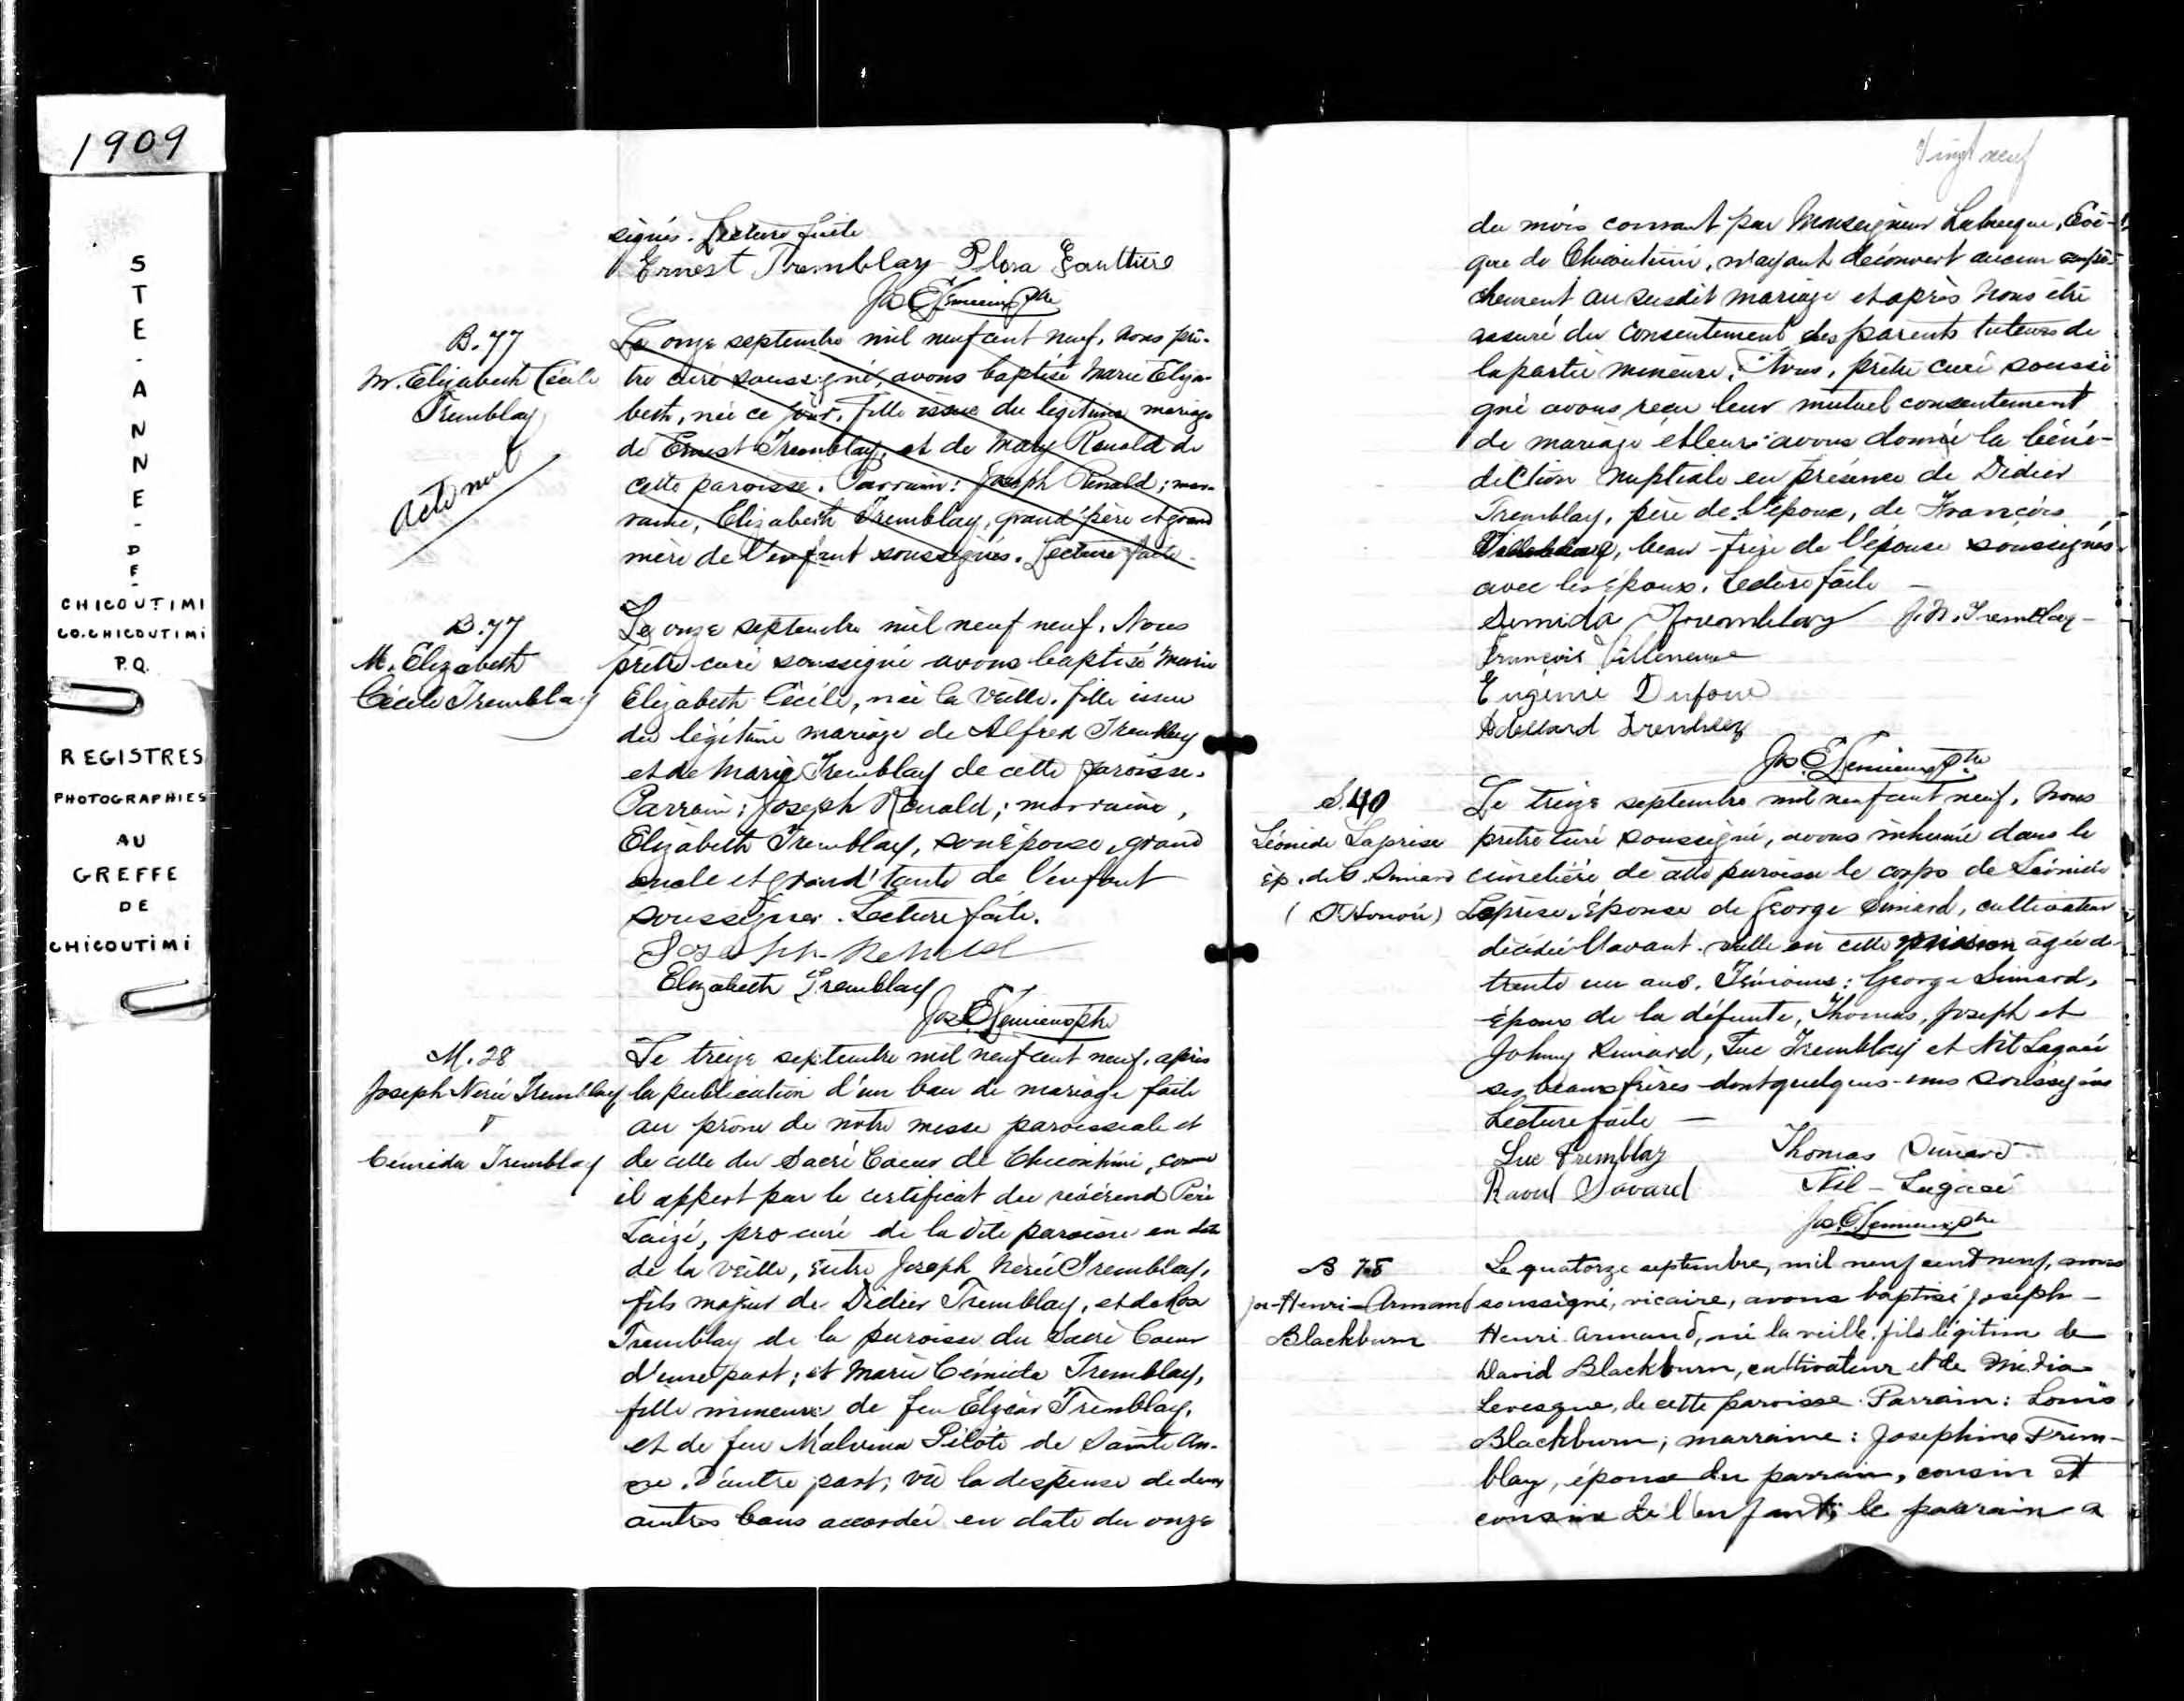 1909
STE-ANNE-DE-
CHICOUTIMI
CO. CHICOUTIMI
P.Q.
REGISTRES
PHOTOGRAPHIES
AU
GREFFE
DE
CHICOUTIMI
signés. Lecture faite
Ernest Tremblay Flora Gauthier
Jos E Lemieux Ptre
B. 77
M. Elizabeth Cécile
Tremblay
Acte nul
Le onze septembre mil neuf cent neuf, nous prê-
tre curé soussigné, avons baptisé Marie Eliza-
beth, née ce jour, fille issue du légitime mariage
de Ernest Tremblay, et de Mary Renald de
cette paroisse. Parrain: Joseph Renald; mar-
raine, Elizabeth Tremblay, grand'père et grand
mère de l'enfant soussignés. Lecture faite.
B. 77
M. Elizabeth
Cécile Tremblay
Le onze septembre mil neuf neuf. Nous
prêtre curé soussigné avons baptisé Marie
Elizabeth Cécile, née la veille. fille issue
du légitime mariage de Alfred Tremblay
et de Marie Tremblay de cette paroisse.
Parrain: Joseph Renald; marraine,
Elizabeth Tremblay, son épouse, grand
oncle et grand'tante de l'enfant
soussignés. Lecture faite.
Joseph Renald
Elizabeth Tremblay
Jos E Lemieux ptre
M. 28
Joseph Nérée Tremblay
&
Cémida Tremblay
Le treize septembre mil neuf cent neuf, après
la publication d'un ban de mariage faite
au prône de notre messe paroissiale et
de celle du Sacré Coeur de Chicoutimi, comme
il appert par le certificat du révérend Père
Laizé, pro-curé de la dite paroisse en date
de la veille, entre Joseph Nérée Tremblay,
fils majeur de Didier Tremblay, et de Rose
Tremblay de la paroisse du Sacré Coeur
d'une part; et Marie Cémida Tremblay,
fille mineure de feu Elzéar Tremblay,
et de feu Malvina Pilote de Sainte An-
ne. d'autre part; vu la dispense de deux
autres bans accordée en date du onze
Vingt neuf
du mois courant par Monseigneur Labrecque, Evê-
que de Chicoutimi, n'ayant découvert aucun empê-
chement au susdit mariage et après nous être
assuré du consentement des parents tuteurs de
la partie mineure, Nous, prêtre curé soussi
gné avons reçu leur mutuel consentement
de mariage et leur avons donné la béné-
diction nuptiale en présence de Didier
Tremblay, père de l'époux, de François
Villeneuve, beau-frère de l'épouse soussignés
avec les époux. Lecture faite
Simida Tremblay J. N. Tremblay
François Villeneuve
Eugénie Dufour
Adelard Tremblay
Jos E Lemieux Ptre
S. 40
Léonide Laprise
ép. de G. Simard
(St Honoré)
Le treize septembre mil neuf cent neuf, nous
prêtre curé soussigné, avons inhumé dans le
cimetière de cette paroisse le corps de Léonide
Laprise, épouse de George Simard, cultivateur
décédée l'avant-veille en cette paroisse agée de
trente un ans. Témoins: George Simard,
époux de la défunte, Thomas, Joseph et
Johny Simard, Luc Tremblay et Nil Lagacé
ses beaux frères dont quelques-uns soussignés
Lecture faite
Luc Tremblay Thomas Simard
Raoul Savard Nil - Lagacé
Jos. E. Lemieux ptre
B 78
Jos-Henri-Armand
Blackburn
Le quatorze septembre, mil neuf cent neuf, nous
soussigné, vicaire, avons baptisé Joseph-
Henri Armand, né la veille, fils légitime de
David Blackburn, cultivateur et de Média
Levesque, de cette paroisse. Parrain: Louis
Blackburn; marraine: Josephine Trem-
blay, épouse du parrain, cousin et
cousine de l'enfant; le parrain a